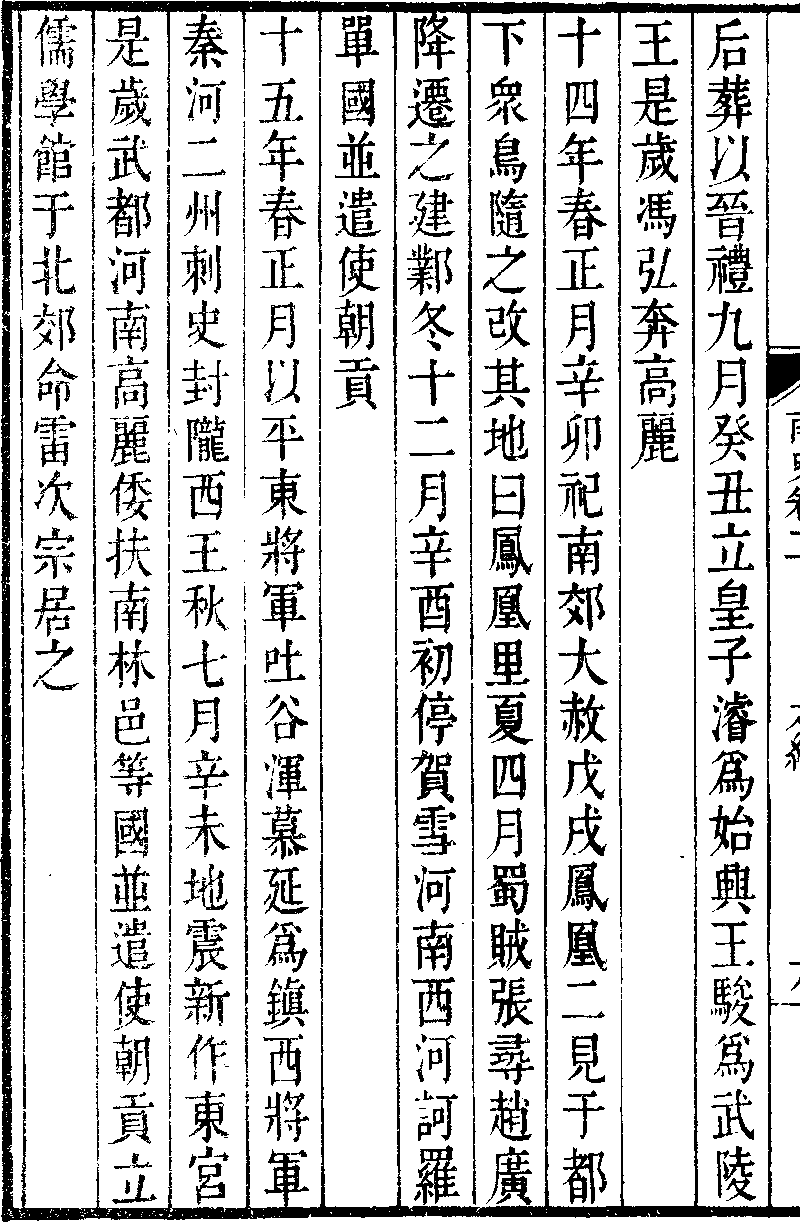 后葬以晉禮九月癸丑立皇子濬爲始興王駿爲武陵
王是歲馮弘奔高麗
十四年春正月辛卯祀南郊大赦戊戌鳳凰二見于都
下衆鳥隨之改其地曰鳳凰里夏四月蜀賊張尋趙廣
降遷之建鄴冬十二月辛酉初停賀雪河南西河訶羅
單國並遣使朝貢
十五年春正月以平東將軍吐谷渾慕延爲鎮西將軍
秦河二州刺史封隴西王秋七月辛未地震新作東宮
是歲武都河南高麗倭扶南林邑等國並遣使朝貢立
儒學館于北郊命雷次宗居之